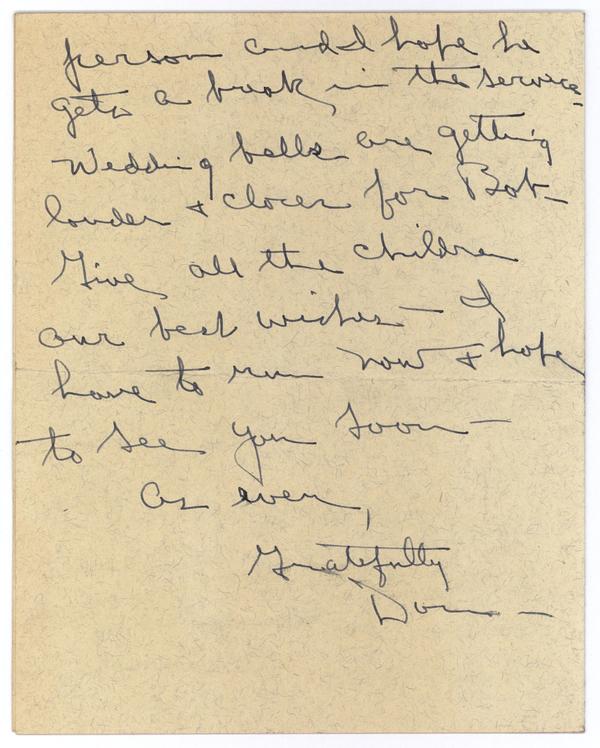 person and I hope he
gets a break in the service.
Wedding bells are getting
louder + closer for Bob -
Give all the children
our best wishes - I
have to run now + hope
to see you soon -
As ever,
Gratefully
Don -